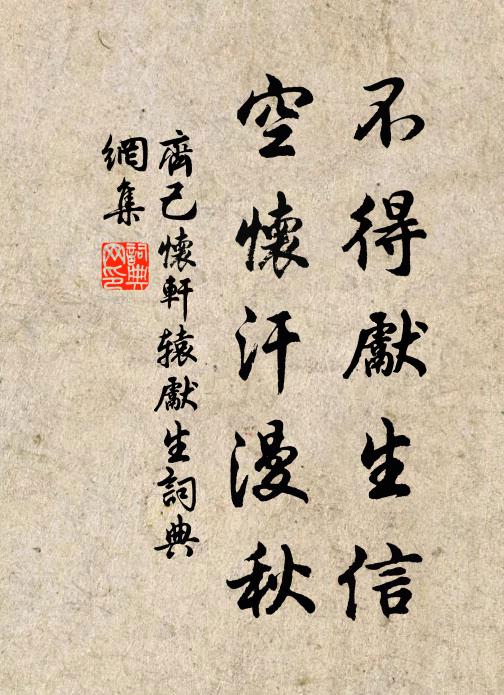 不得獻生信
空懷汗漫秋
齊己懷軒辕獻生詞典
網集
詞典
网印